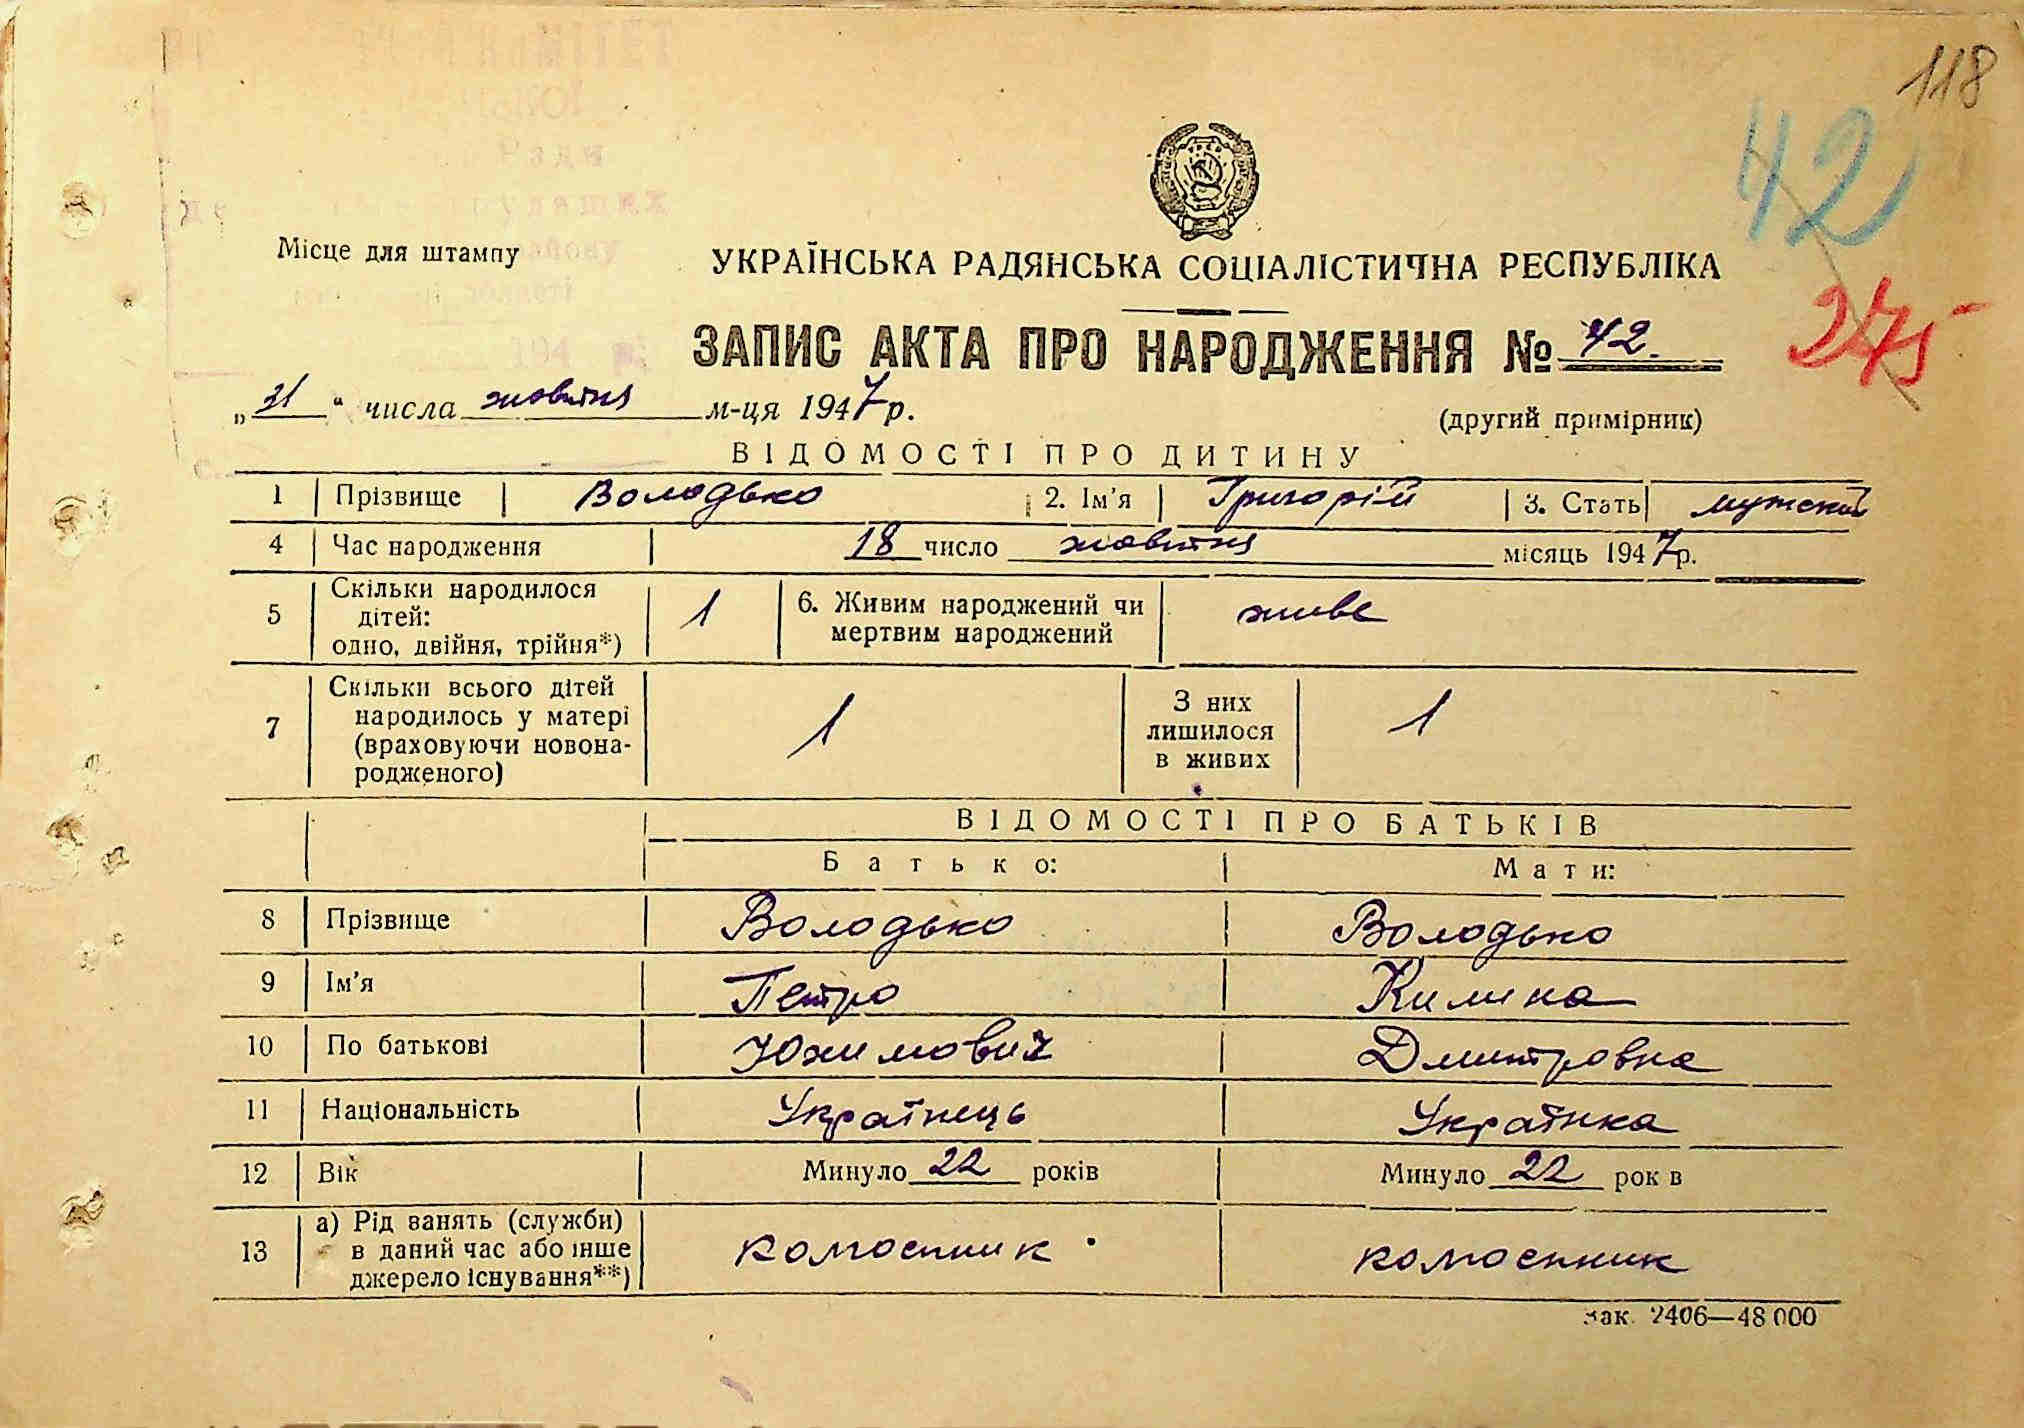 118
42
275
Місце для штампу
УКРАЇНСЬКА РАДЯНСЬКА СОЦІАЛІСТИЧНА РЕСПУБЛІКА
ЗАПИС АКТА ПРО НАРОДЖЕННЯ № 42.
„21“ числа жовтня м-ця 1947 р.
(другий примірник)
ВІДОМОСТІ ПРО ДИТИНУ
1 Прізвище Володько 2. Ім'я Григорій 3. Стать мужский
4 Час народження 18 число жовтня місяць 1947 р.
5 Скільки народилося дітей: одно, двійня, трійня*) 1 6. Живим народжений чи мертвим народжений живе
7 Скільки всього дітей народилось у матері (враховуючи новонародженого) 1 З них лишилося в живих 1
ВІДОМОСТІ ПРО БАТЬКІВ
Батько: Мати:
8 Прізвище Володько Володько
9 Ім'я Петро Килина
10 По батькові Юхимович Дмитровна
11 Національність Українець Українка
12 Вік Минуло 22 років Минуло 22 рок в
13 а) Рід занять (служби) в даний час або інше джерело існування**) колгоспник колгоспник
Зак. 2406—48 000